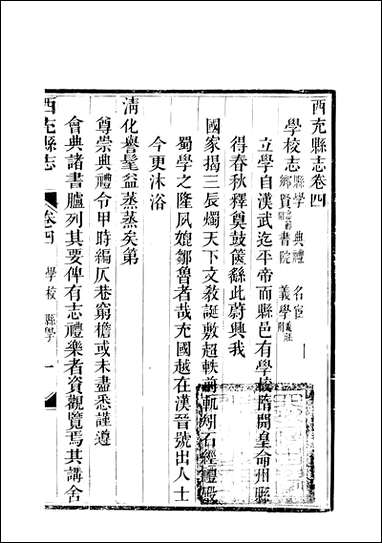 西充縣志卷四
學校志 縣學 典禮 名宦
鄉賢 書院 義學
立學自漢武迄平帝而縣邑有學校隋開皇命州縣
得春秋釋奠鼓篋繇此蔚興我
國家揭三辰燭天下文敎誕敷超軼前軌矧石經禮殿
蜀學之隆夙媲鄒魯者哉充國越在漢晉號出人士
今更沐浴
清化譽髦益蒸蒸矣第
尊崇典禮令甲時編仄巷窮檐或未盡悉謹遵
會典諸書臚列其要俾有志禮樂者資觀覽焉其講舍
西充縣志
卷四 學校 縣學 一